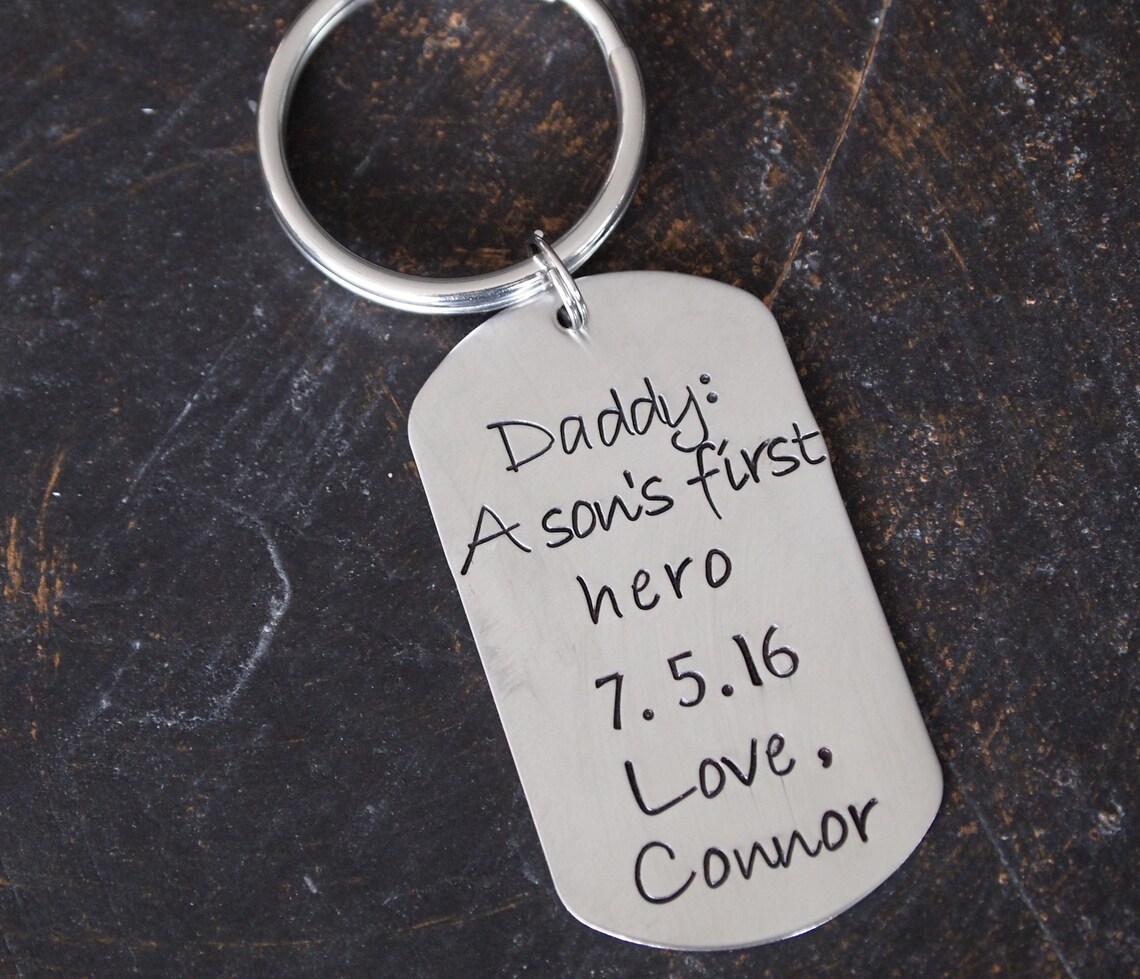 Daddy:
A son's first
hero
7.5.16
Love,
Connor